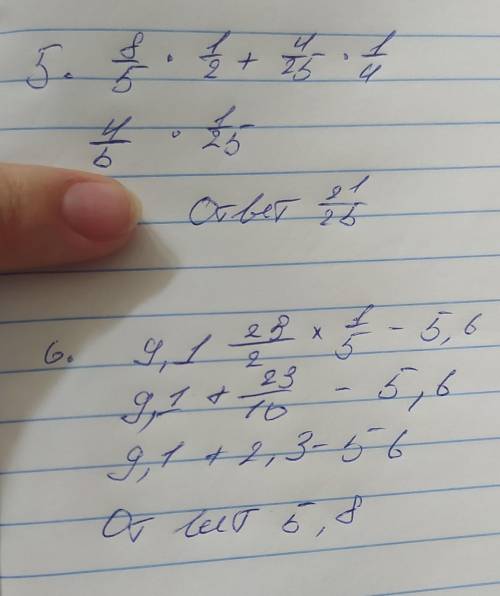 5. 8/5 · 1/2 + 4/25 · 1/4
4/5 · 1/25
Ответ 21/25
6. 9,1 23/2 × 1/5 - 5,6
9,1 + 23/10 - 5,6
9,1 + 2,3 - 5 6
Ответ 5,8